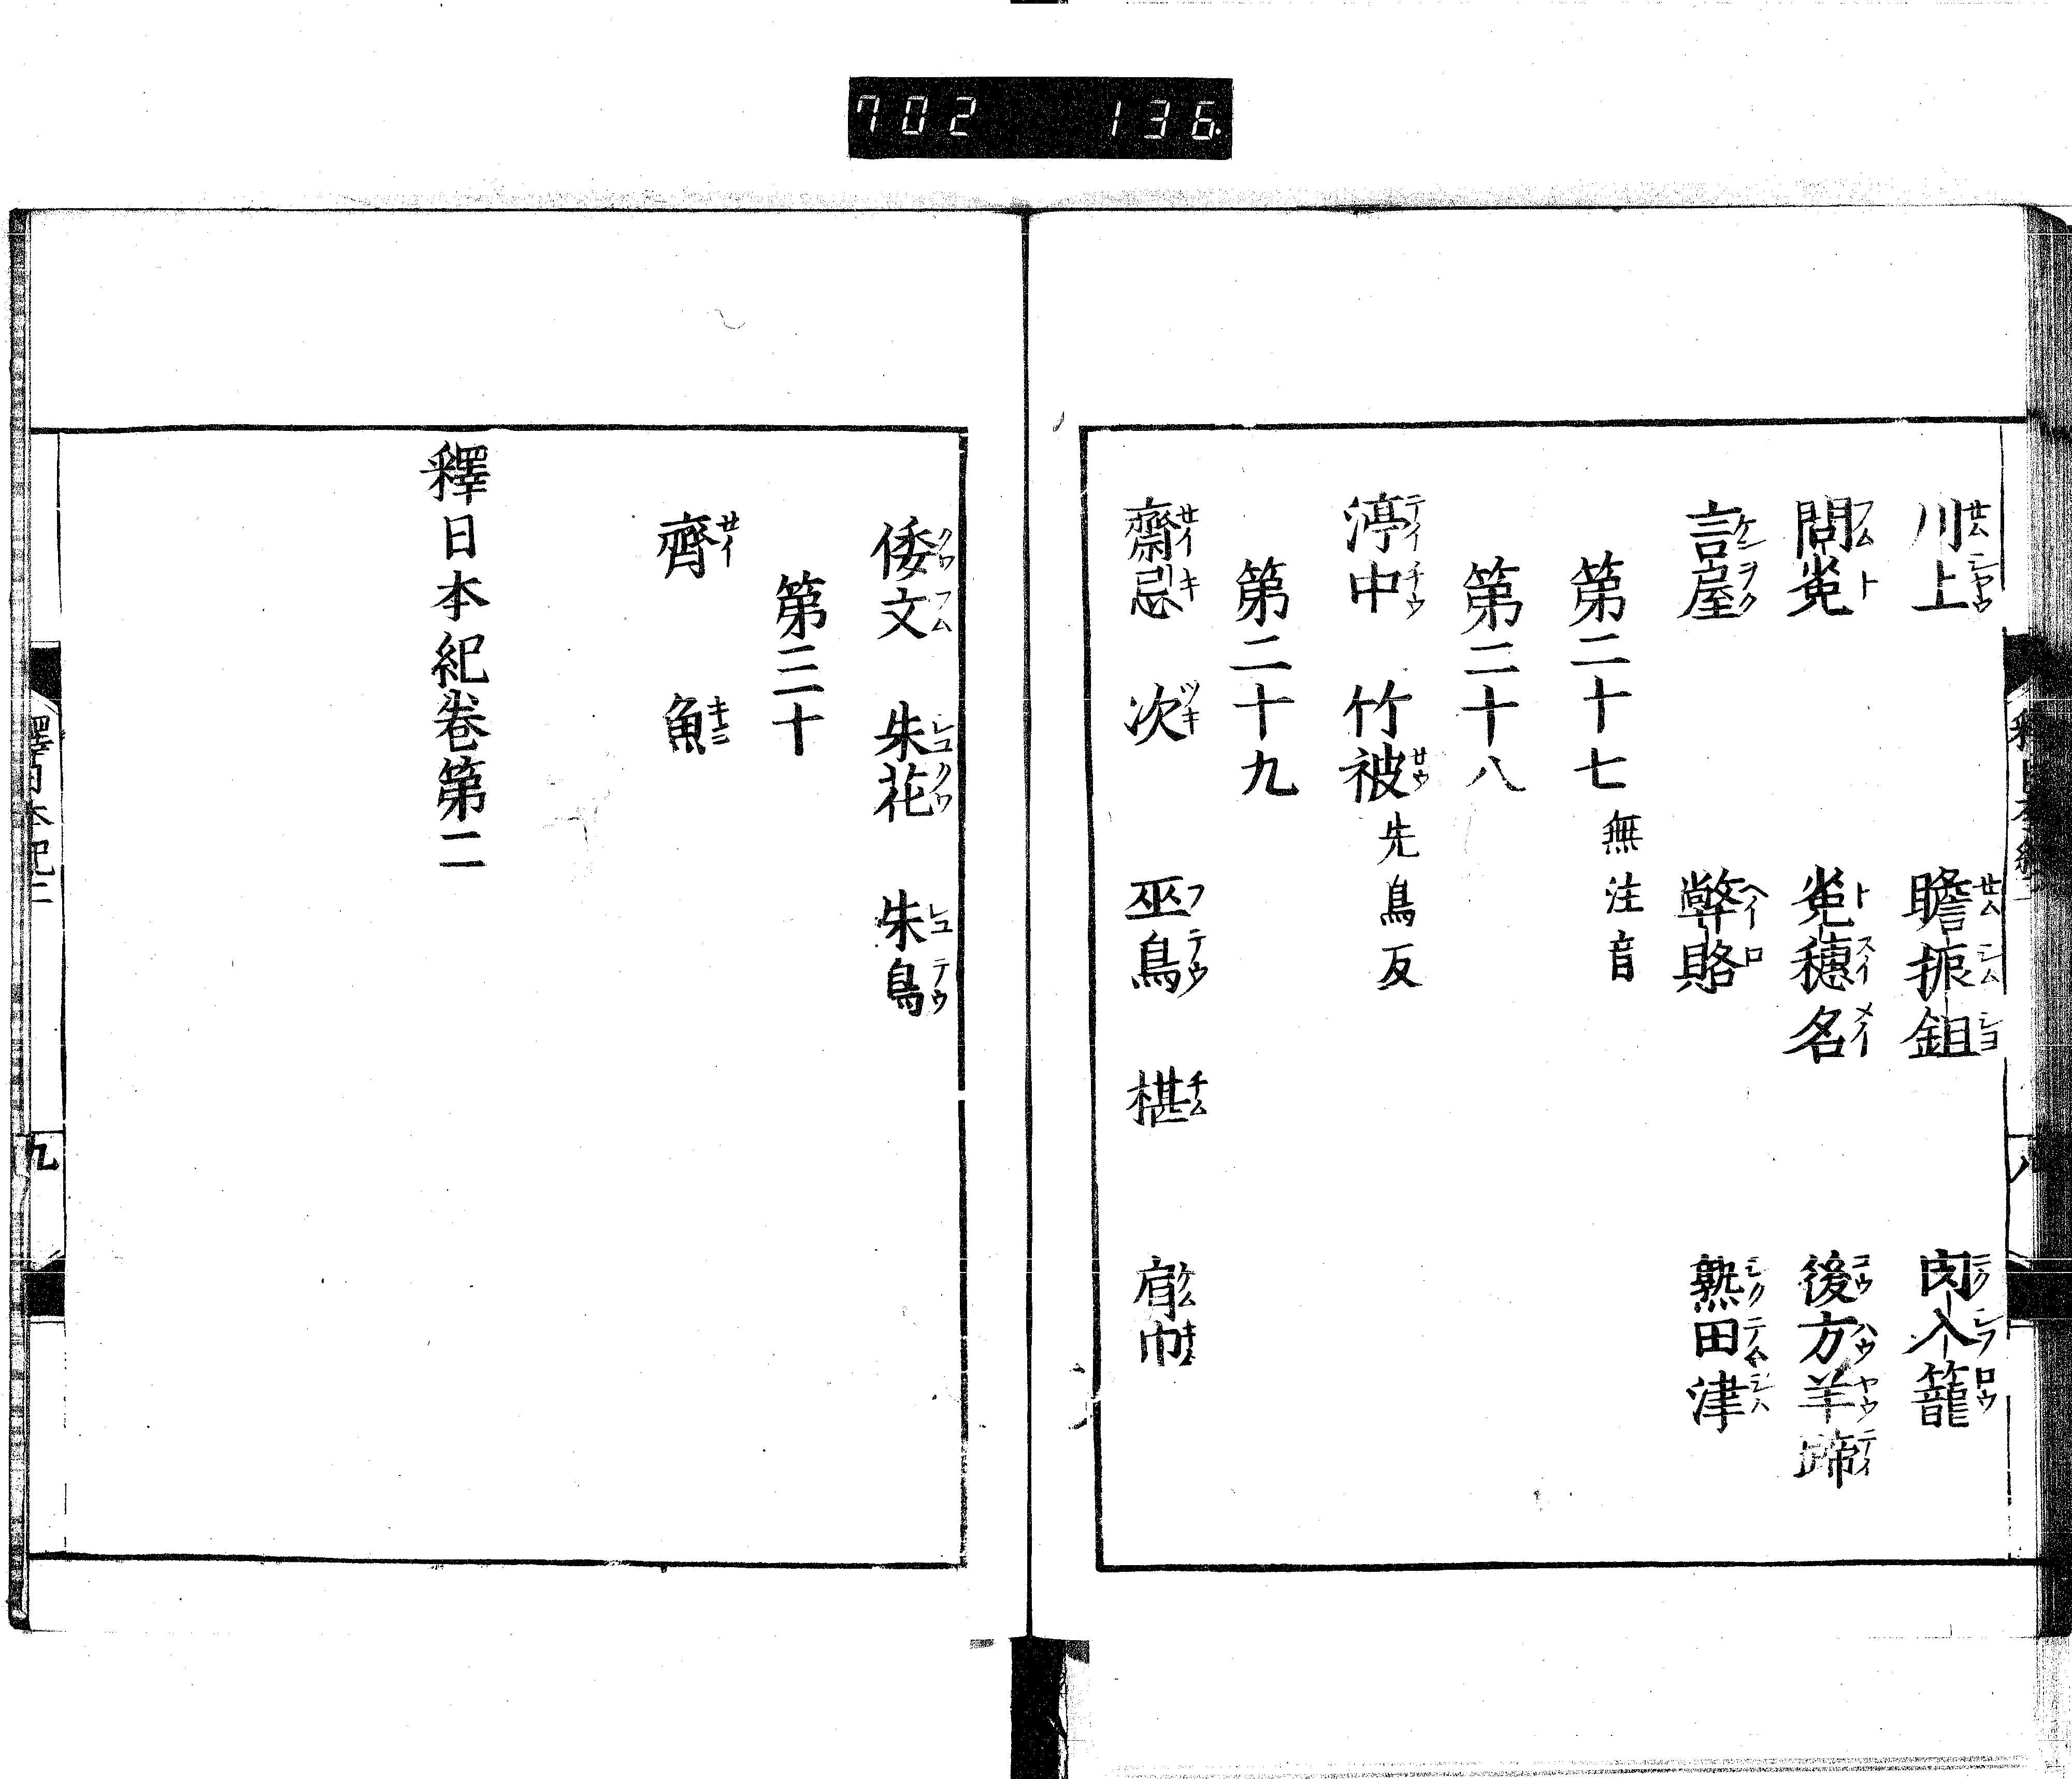 702 136
川上 瞻振鉏 肉入籠
問菟 菟穗名 後方羊蹄
言屋 弊賂 熟田津
第二十七 無注音
第二十八
渟中 竹被 先鳥反
第二十九
齋忌 次 巫鳥 椹 肩巾
倭文 朱花 朱鳥
第三十
齊 魚
釋日本紀卷第二
釋日本紀二
九